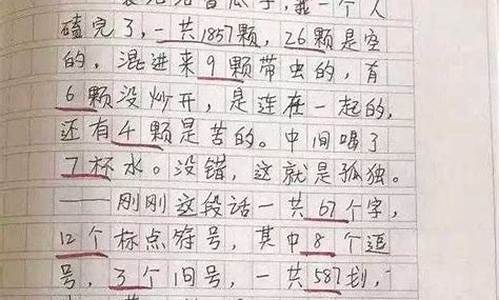 瓜子，我一个人
磕完了，一共1857颗，26颗是空
的，混进来9颗带虫的，有
6颗没炒开，是连在一起的，
还有4颗是苦的。中间喝了
7杯水。没错，这就是孤独。
——刚刚这段话一共67个字，
12个标点符号，其中8个逗
号，3个句号，一共587划，